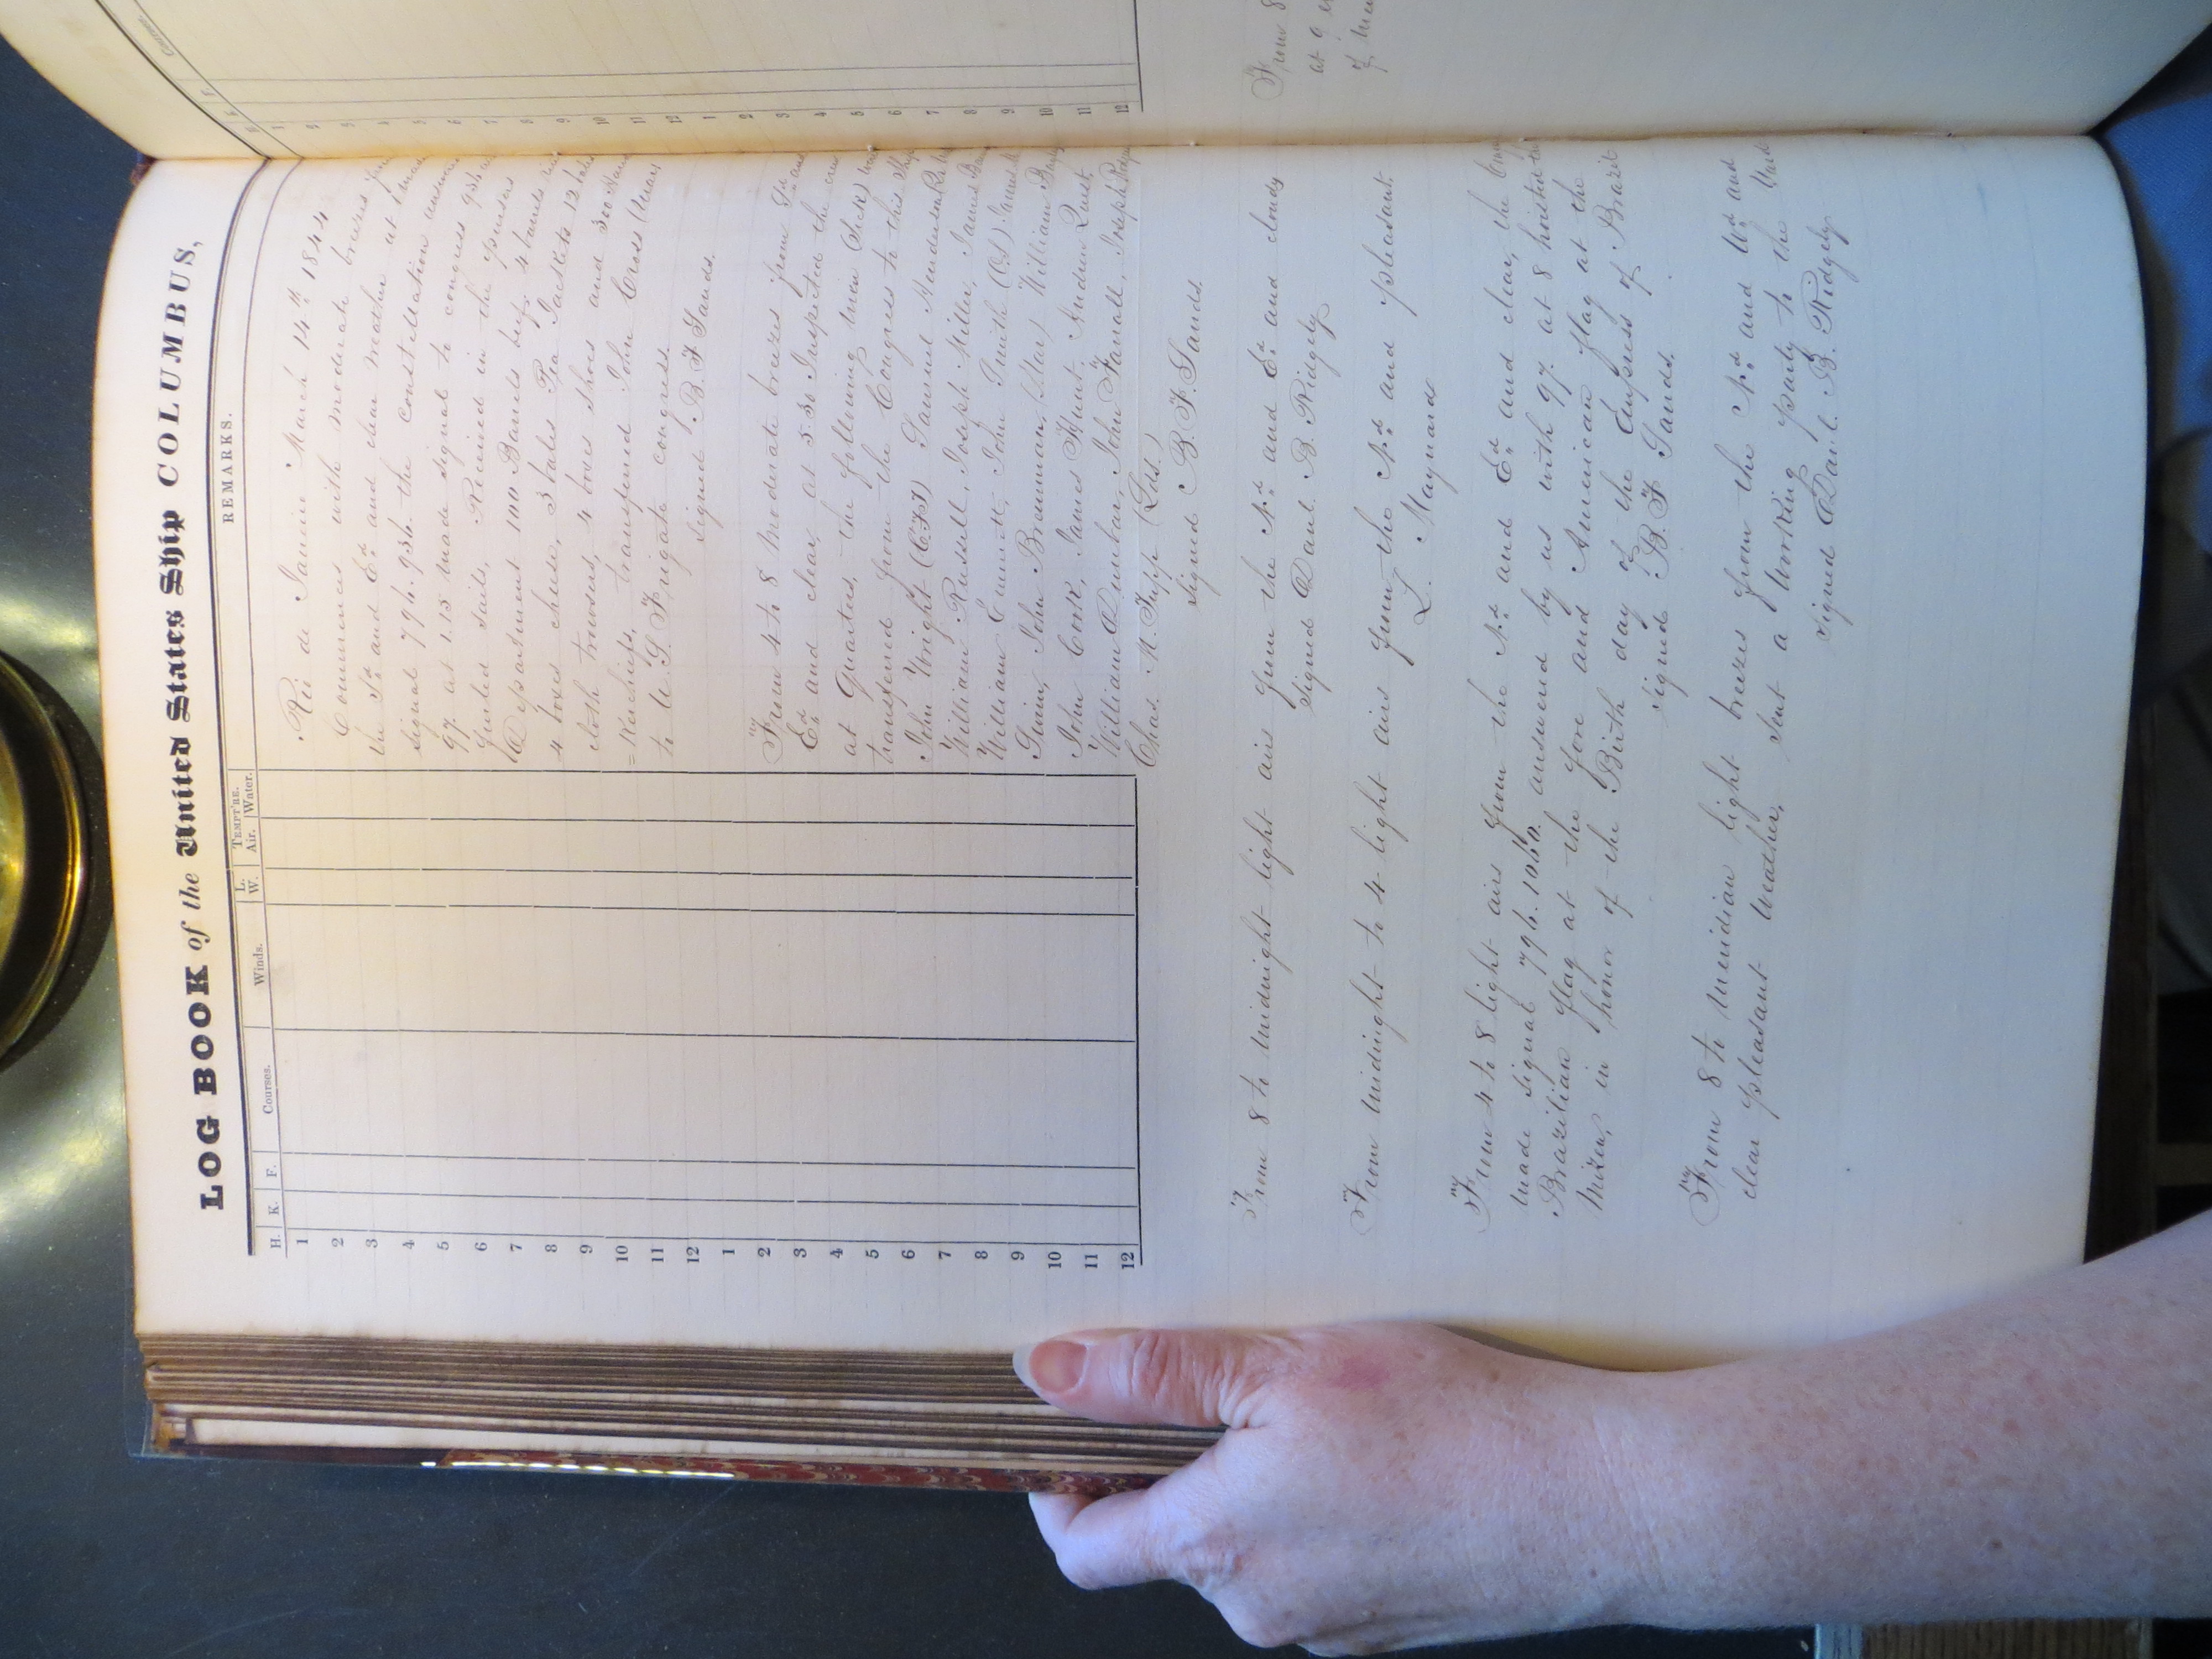 LOG BOOK of the United States Ship COLUMBUS,
REMARKS.
H. K. F. Courses. Winds. L. W. TEMPT'RE. Air. Water.
1
2
3
4
5
6
7
8
9
10
11
12
1
2
3
4
5
6
7
8
9
10
11
12
Rio de Janeiro March 14th 1844
Commences with moderate breezes from
the Sd and Ed and clear weather at 1 made
signal 796. 934. the Constellation answered
97. at 1.15 made signal to congress 934
furled sails, Received in the pursers
Department 100 Barrels beef 4 barrels
4 boxes cheese, 3 bales Pea Jackets 12 bales
cloth trowsers, 4 boxes shoes and 300 Hand
=Kerchiefs, transferred John Cross (Sea)
to U. S. Frigate congress.
signed B. F Sands.
From 4 to 8 Moderate breezes from Sd and
Ed and clear, at 5.30 Inspected the crew
at Quarters, the following men (Sick) were
transfered from the Congress to this Ship
John Wright (CF) Samuel Henderson
William Russell, Joseph Miller, James
William Emmett, John Smith (OS)
Guinn, John Brownman, (Mar) William
John Cook, James Hunt, Andrew Quest.
William Dunbar, John Farrall, Joseph
Chas. M. Tupp (Lds.)
signed B. F. Sands.
From 8 to Midnight light airs from the Nd and Ed and cloudy
signed Danl. B. Ridgely
From Midnight to 4 light airs from the Nd and pleasant.
L. Maynard
From 4 to 8 light airs from the Nd and Ed and clear, the
made signal 796. 1066. answered by us with 97. at 8 hoisted the
Brazilian flag at the fore and American flag at the
Mizen, in honor of the Birth day of the Empress of Brazil
signed B. F Sands.
From 8 to Meridian light breezes from the Nd and Wd and
clear pleasant weather, sent a Working party to the
signed Danl. B. Ridgely
Courses.
F.
K.
H.
1
2
3
4
5
6
7
8
9
10
11
12
1
2
3
4
5
6
7
8
9
10
11
12
From 8
at 9
of